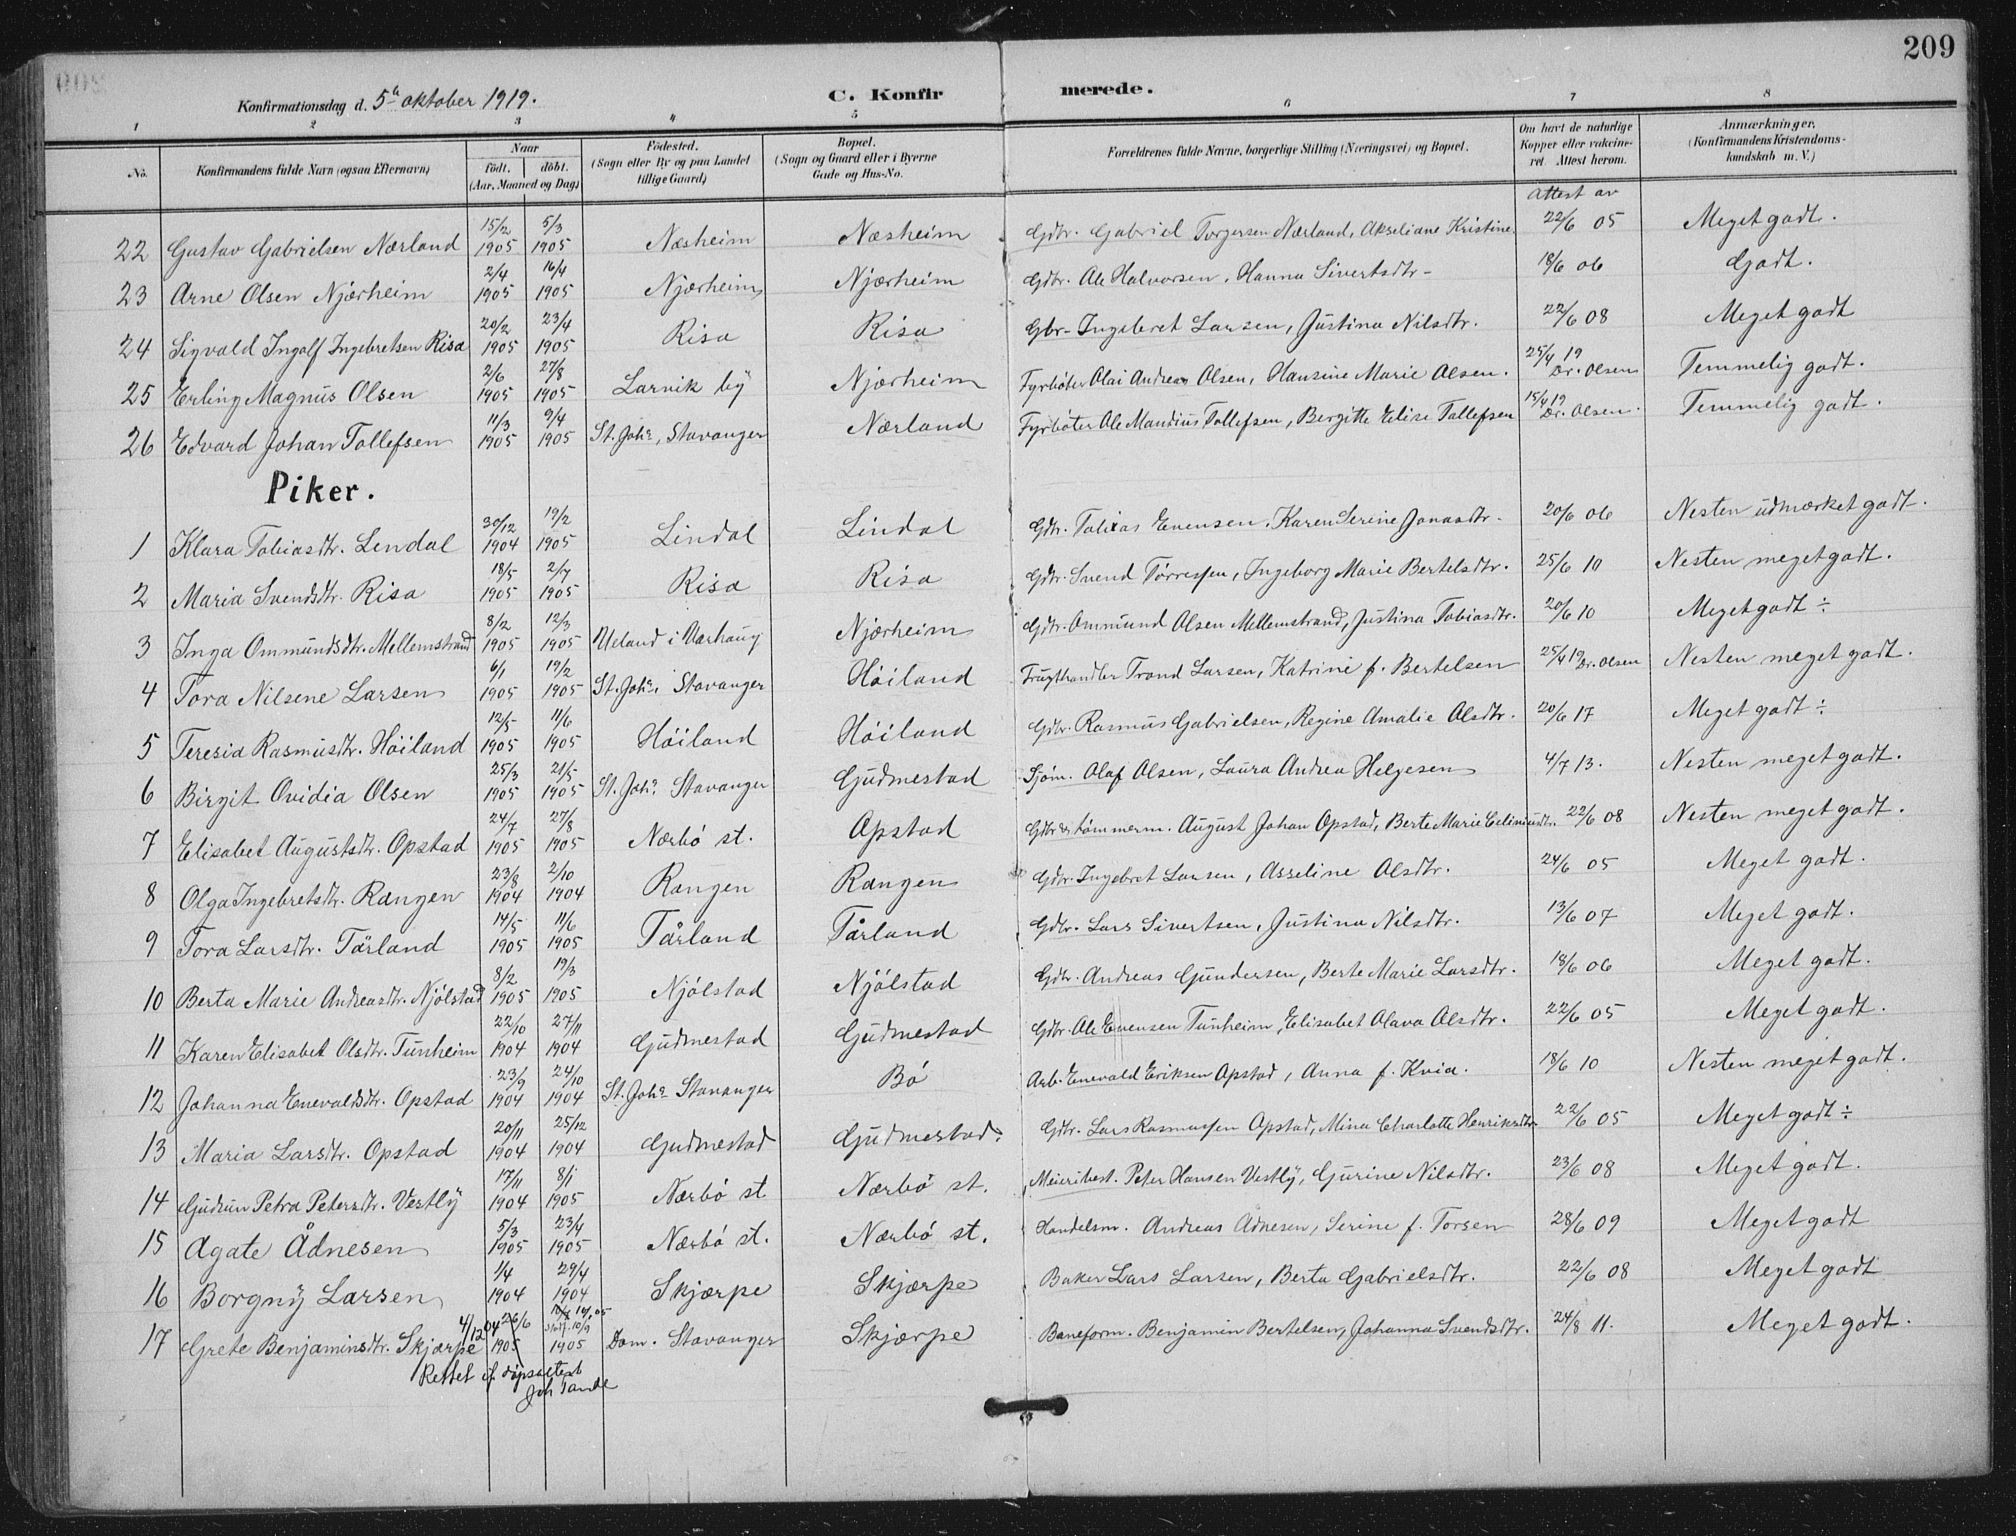 209
Konfirmationsdag d. 5te oktober 1919. C. Konfirmerede.
1 2 3 4 5 6 7 8
No. Konfirmandens fulde Navn (ogsaa Efternavn) Naar født. døbt. (Aar, Maaned og Dag) Fødested. (Sogn eller By og paa Landet tillige Gaard) Bopæl. (Sogn og Gaard eller i Byerne Gade og Hus-No. Forældrenes fulde Navne, borgerlige Stilling (Næringsvei) og Bopæl. Om havt de naturlige Kopper eller vaccineret. Attest herom. Anmærkninger, (Konfirmandens Kristendomskundskab m. V.)
Attest av
22 Gustav Gabrielsen Nærland 15/2 1905 5/3 1905 Næsheim Næsheim Gdbr. Gabriel Torgersen Nærland, Akseliane Kristine. 22/6 05 Meget godt.
23 Arne Olsen Njærheim 2/4 1905 16/4 1905 Njærheim Njærheim Gdbr. Ole Halvorsen, Hanna Sivertsdtr. 18/6 06 Godt.
24 Sigvald Ingolf Ingebretsen Risa 20/2 1905 23/4 1905 Risa Risa Gbr. Ingebret Larsen, Justina Nilsdtr. 22/6 08 Meget godt
25 Erling Magnus Olsen 2/6 1905 27/8 1905 Larvik by Njærheim Fyrbøter Olai Andreas Olsen, Hansine Marie Olsen. 25/4 19 Dr. Olsen Temmelig godt.
26 Edvard Johan Tollefsen 11/3 1905 9/4 1905 St. Johs, Stavanger Nærland Fyrbøter Ole Mandius Tollefsen, Bergitte Elise Tollefsen 15/4 19 Dr. Olsen. Temmelig godt.
Piker.
1 Klara Tobiasdtr. Lendal 30/12 1904 19/2 1905 Lindal Lindal Gdbr. Tobias Evensen, Karen Serine Jonasdtr. 20/6 06 Nesten udmærket godt.
2 Maria Svendsdtr. Risa 18/5 1905 2/7 1905 Risa Risa Gdbr. Svend Tørressen, Ingeborg Marie Bertelsdtr. 25/6 10 Nesten meget godt.
3 Inga Ommundsdtr. Mellemstrand 8/2 1905 12/3 1905 Ueland i Varhaug Njærheim Gdbr. Ommund Olsen Mellemstrand, Justina Tobiasdtr. 20/6 10 Meget godt ÷
4 Tora Nilsene Larsen 6/1 1905 19/2 1905 St. Johs, Stavanger Høiland Frugthandler Trond Larsen, Katrine f. Bertelsen 25/4 19 Dr. Olsen Nesten meget godt.
5 Teresia Rasmusdtr. Høiland 12/5 1905 11/6 1905 Høiland Høiland Gdbr. Rasmus Gabrielsen, Regine Amalie Olsdtr. 20/6 17 Meget godt ÷
6 Birgit Ovidia Olsen 25/3 1905 21/5 1905 St. Johs Stavanger Gudmestad Sjøm. Olaf Olsen, Laura Andrea Helgesen 4/7 13. Nesten meget godt.
7 Elisabet Augustsdtr. Opstad 24/7 1905 27/8 1905 Nærbø st. Opstad Gdbr & tømmerm. August Johan Opstad, Berte Marie 22/6 08 Nesten meget godt.
8 Olga Ingebretsdtr. Rangen 23/8 1904 2/10 1904 Rangen Rangen Gdbr. Ingebret Larsen, Asseline Olsdtr. 24/6 05 Meget godt.
9 Tora Larsdtr. Tårland 14/5 1905 11/6 1905 Tårland Tårland Gdbr. Lars Sivertsen, Justina Nilsdtr. 13/6 07 Meget godt.
10 Berta Marie Andreasdtr. Njølstad 8/2 1905 19/3 1905 Njølstad Njølstad Gdbr. Andreas Gundersen, Berte Marie Larsdtr. 18/6 06 Meget godt.
11 Karen Elisabet Olsdtr. Tunheim 22/10 1904 27/11 1904 Gudmestad Gudmestad Gdbr. Ole Evensen Tunheim, Elisabet Olava Olsdtr. 22/6 05 Meget godt.
12 Johanna Enevaldsdtr. Opstad 23/9 1904 24/10 1904 St. Johs Stavanger Bø Arb. Enevald Eriksen Opstad, Anna f. Kvia. 18/6 10 Nesten meget godt.
13 Maria Larsdtr. Opstad 20/11 1904 25/12 1904 Gudmestad Gudmestad. Gdbr. Lars Rasmussen Opstad, Mina Charlotte Henriksdtr 22/6 05 Meget godt ÷
14 Gudrun Petra Petersdtr. Vestly 17/11 1904 8/1 1905 Nærbø st Nærbø st. Meieribest. Peter Hansen Vestly, Gurine Nilsdtr. 23/6 08 Meget godt.
15 Agate Ådnesen 5/3 1905 23/4 1905 Nærbø st. Nærbø st. Handelsm. Andreas Ådnesen, Serine f. Torsen 28/6 09 Meget godt
16 Borgny Larsen 1/4 1904 29/4 1904 Skjærpe Skjærpe Baker Lars Larsen, Berta Gabrielsdtr. 22/6 08 Meget godt
17 Grete Benjaminsdtr. Skjærpe 4/12 04 26/6 1905 10/9 1905 Dom. Stavanger Skjærpe Baneform. Benjamin Bertelsen, Johanna Svendsdtr. 24/8 11. Meget godt.
Rettet if døpsattest
Joh Tande